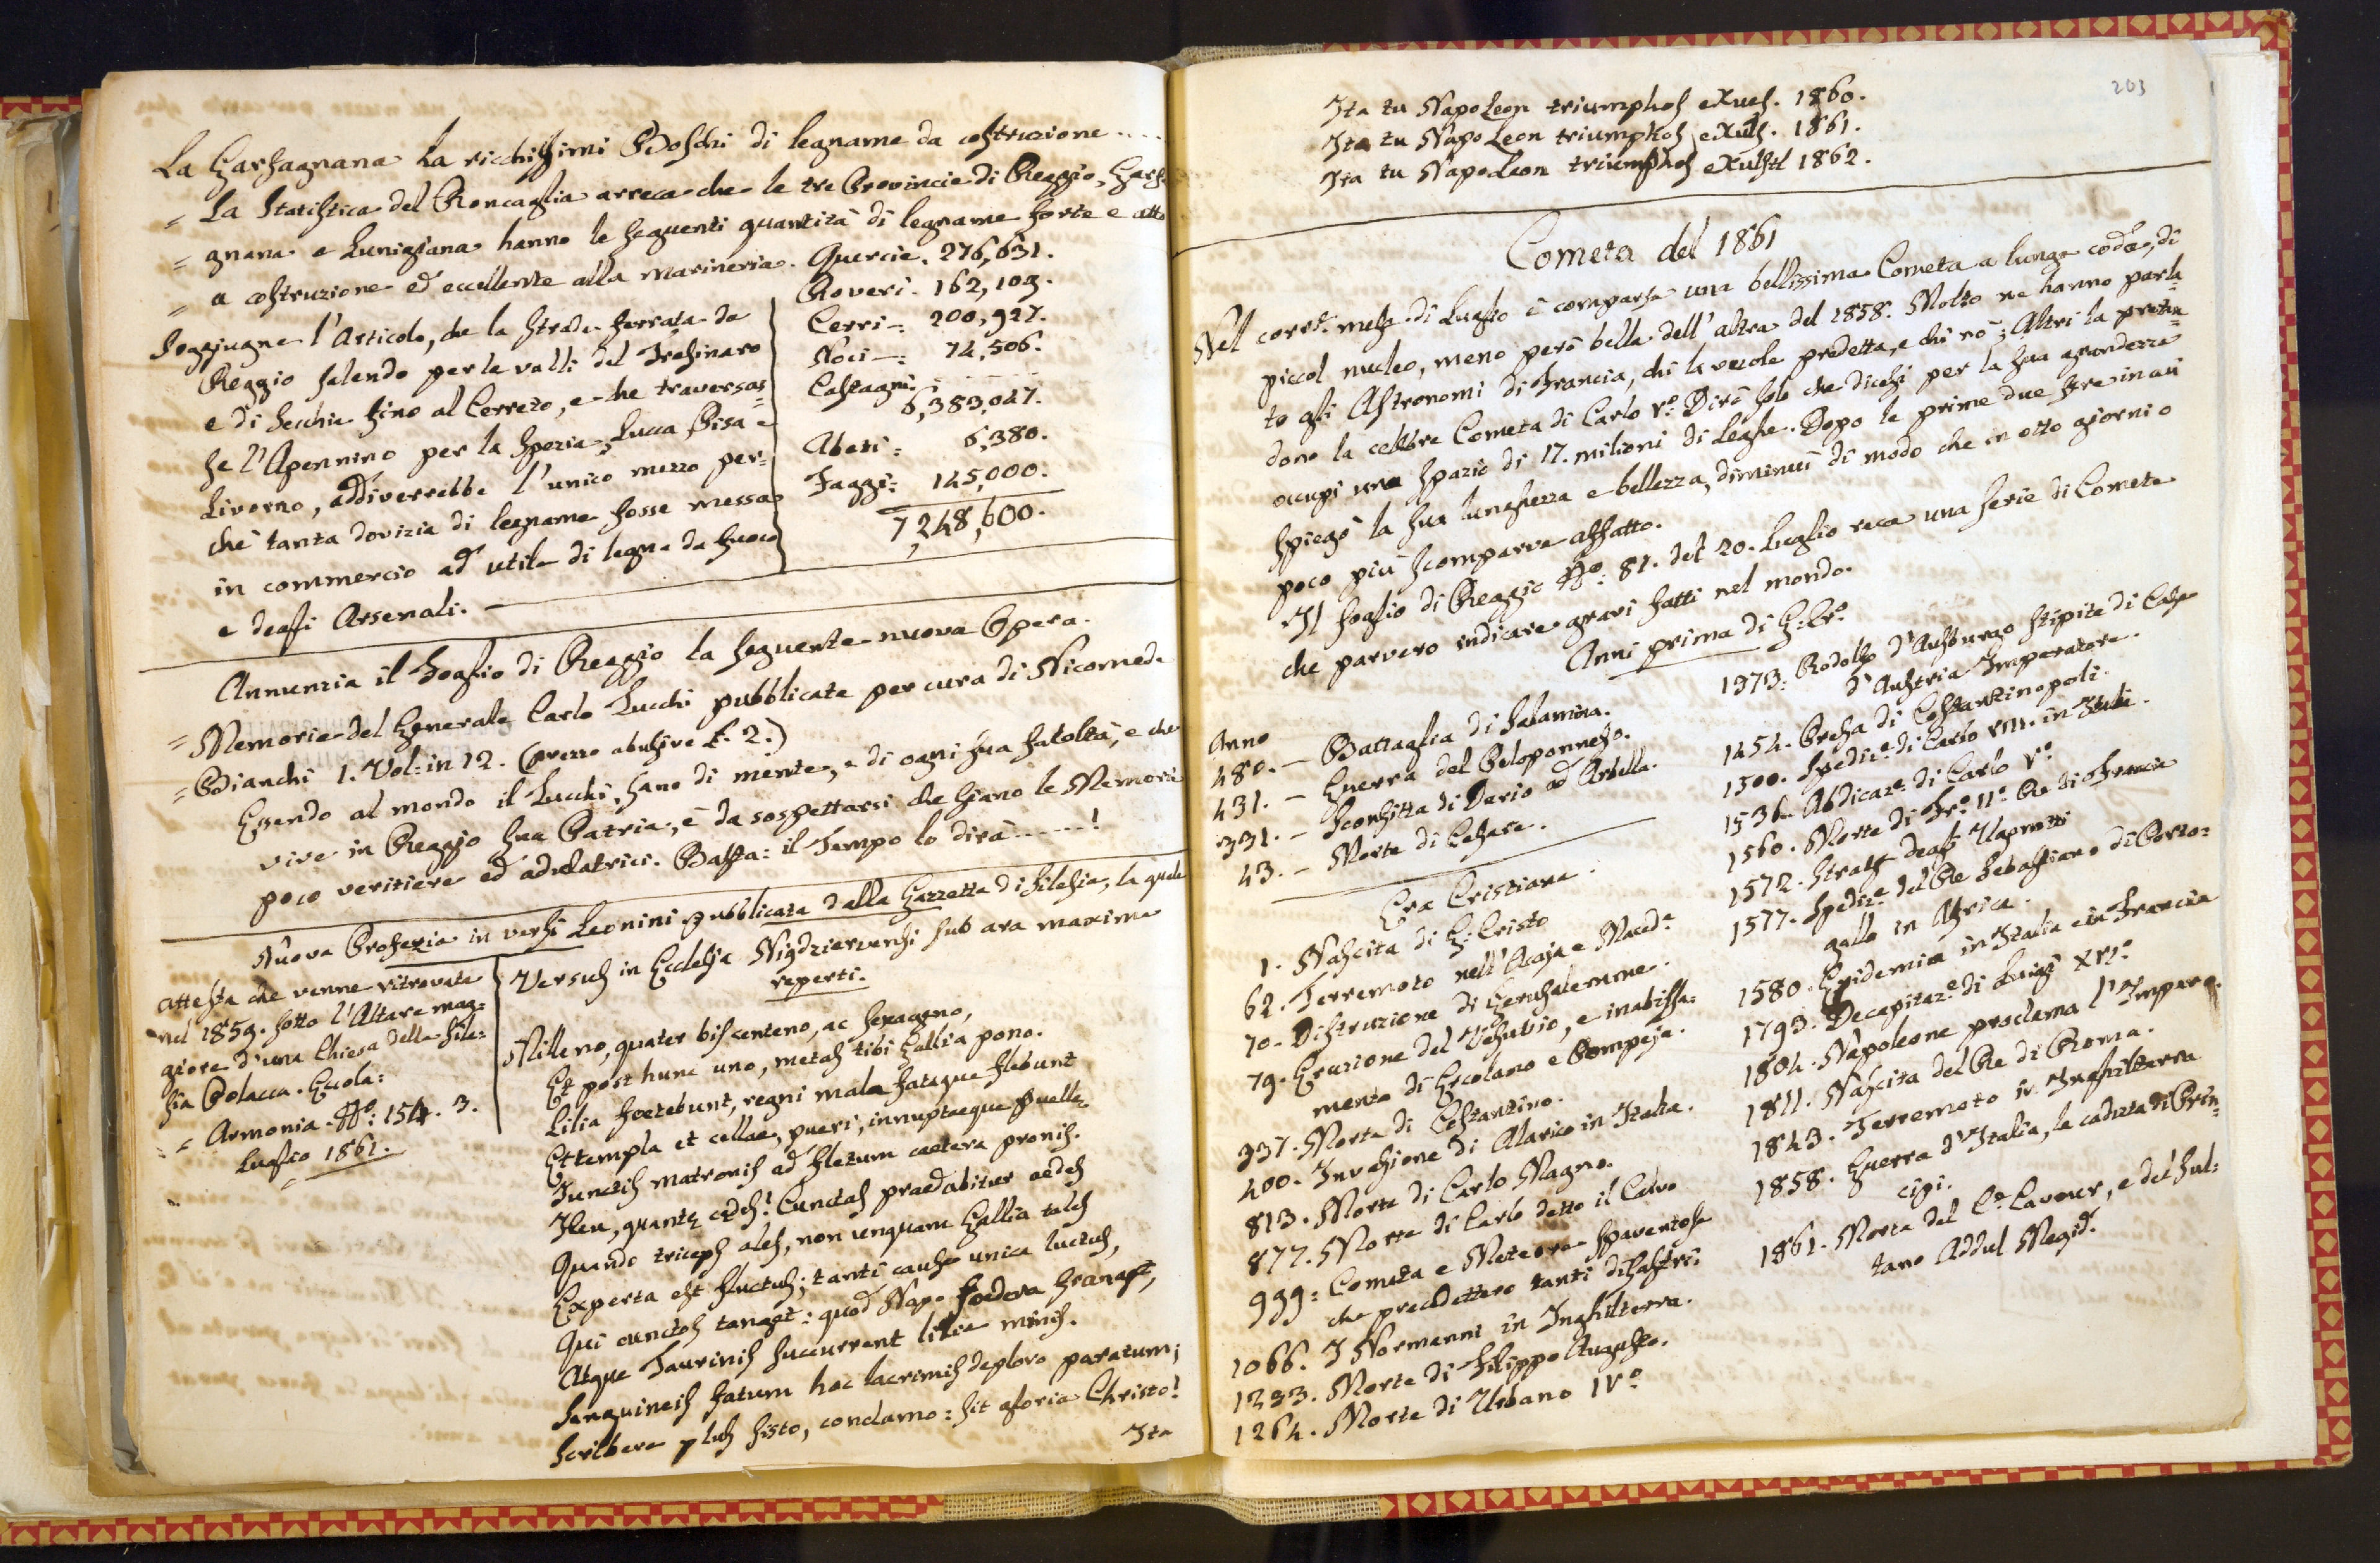 La Garfagnana ha ricchissimi Boschi di legname da costruzione ....
= La Statistica del Roncaglia arreca che le tre Provincie di Reggio, Garfa
= gnana e Lunigiana hanno le seguenti quantità di legname forte e atto
= a costruzione ed eccellente alla marineria. Quercie. 276,631.
Roveri. 162,109.
Cerri-: 200,927.
Noci-: 74,506.
Castagni:
6,383,047.
Abeti: 6,380.
Faggi: 145,000.
7,248,600.
Soggiugne l'Articolo, che la strada ferrata da
Reggio salendo per le valli del Tresinaro
e di Secchia fino al Cerreto, e che traversas=
se l'Apennino per la Spezia, Lucca Pisa e
Livorno, addiverrebbe l'unico mezzo per=
chè tanta dovizia di legname fosse messa
in commercio ad utile di legna da fuoco
e degli Arsenali.
Annunzia il Foglio di Reggio la seguente nuova Opera.
= Memorie del Generale Carlo Zucchi pubblicate per cura di Nicomede
= Bianchi 1. Vol: in 12. (prezzo abusive £. 2.)
Essendo al mondo il Zucchi, sano di mente, e di ogni sua facoltà, e che
vive in Reggio sua Patria, è da sospettarsi che siano le Memorie
poco veritiere ed adulatrici. Basta: il Tempo lo dirà ......!
Nuova Profezia in versi Leonini pubblicata dalla Gazzetta di Silesia, la quale
attesta che venne ritrovata
nel 1859. sotto l'Altare mag:
giore d'una Chiesa della Sile:
sia Polacca. Eccola:
= Armonia. N°: 154. 3.
Luglio 1861.
Versus in Ecclesia Nigdziervensi sub ara maxima
reperti.
Milleno, quater bis centeno, ac sexageno,
Et post hunc uno, metas tibi Gallia pono.
Lilia foetebunt, regni mala fataque flebunt
Et templa et cellae, pueri, innuptaeque puellę
Junctis matronis ad fletum caetera pronis.
Heu, quantę cędes! Cunctas praedabitur aedes
Quando triceps ales, non unquam Gallia tales
Experta est fluctus; tanti causa unica luctus,
Qui cunctos tanget: quod Napo foedera franget,
Atque Taurinis succurrent lilia minis.
Sanguineis fatum hoc lacrimis deploro paratum;
Scribere plus sisto, conclamo: sit gloria Christo!
Ita
203
Ita tu NapoLeon triumphos eXues. 1860.
Ita tu NapoLeon triumphos eXuIs. 1861.
Ita tu NapoLeon triumphos eXulstI 1862.
Cometa del 1861
Nel corr.e mese di Luglio è comparsa una bellissima Cometa a lunga coda, di
piccol nucleo, meno però bella dell'altra del 1858. Molto ne hanno parla=
to gli Astronomi di Francia, chi la vuole predetta, e chi nò; Altri la preten=
dono la celebre Cometa di Carlo V°. Dirò solo che dicesi per la sua grandezza
occupi una spazio di 17. milioni di Leghe. Dopo le prime due sere in cui
spiegò la sua lunghezza e bellezza, diminuì di modo che in otto giorni o
poco più scomparve affatto.
Il foglio di Reggio N°: 81. del 20. Luglio reca una serie di Comete
che parvero indicare gravi fatti nel mondo.
Anni prima di G: Cr°
Anno
480. - Battaglia di Salamina.
431. - Guerra del Peloponneso.
331. - Sconfitta di Dario ad Arbella.
43. - Morte di Cesare.
Era Cristiana.
1. Nascita di G: Cristo
62. Terremoto nell'Acaja e Maced.a
70. Distruzione di Gerusalemme.
79. Eruzione del Vesuvio, e inabissa:
mento di Ercolano e Pompeja.
337. Morte di Costantino.
400. Invasione di Alarico in Italia.
813. Morte di Carlo Magno.
877. Morte di Carlo detto il Calvo
939: Cometa e Meteora spaventosa
che precedettero tanti disastri.
1066. I Normanni in Inghilterra.
1233. Morte di Filippo Augusto.
1264. Morte di Urbano IV°
1373: Rodolfo d'Ausburgo stipite di Casa
d'Austria Imperatore.
1454. Presa di Costantinopoli.
1500. Spediz.e di Carlo VIII. in Italia.
1536. Abdicaz.e di Carlo V°
1560. Morte di Fr.° II° Re di Francia
1572. Strage degli Ugonotti
1577. Spediz.e del Re Sebastiano di Porto:
gallo in Africa.
1580. Epidemia in Italia e in Francia
1793. Decapitaz.e di Luigi XVI°
1804. Napoleone proclama l'Impero.
1811. Nascita del Re di Roma.
1843. Terremoto in Inghilterra
1858. Guerra d'Italia, la caduta di Prin=
cipi.
1861. Morte del C.e Cavour, e del Sul:
tano Addul Megid.